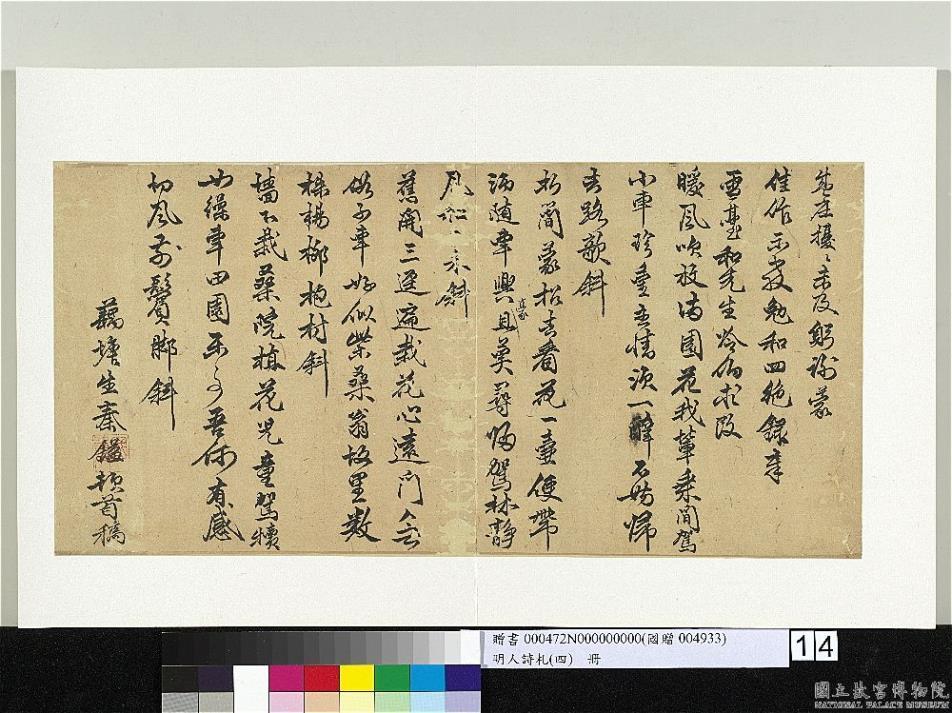 佳作示教勉和四絶録奉
雪臺和先生吟伯求改
暖風吹放滿園花我輩乘閒駕
小車珍重主情須一醉不妨歸
去路欹斜
折簡蒙招去看花一壺便帶
酒隨車興且莫尋歸駕林靜
風松日未斜
蕉開三逕遍栽花心遠門
似子車好似柴桑翁故里數
株楊柳抱村斜
墻下栽桑院植花兒童駕犢
如繰車田園樂吾師有感
切風前鬢脚斜
藕塘生秦頓首稿
贈書 000472N000000000(國贈 004933)
明人詩札(四) 冊
14
國立故宮博物院
NATIONAL PALACE MUSEUM